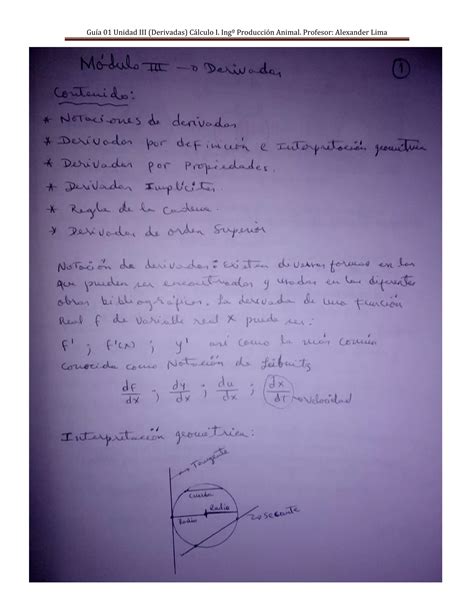 Guía 01 Unidad III (Derivadas) Cálculo I. Ingº Producción Animal. Profesor: Alexander Lima
Módulo III → Derivadas
1
Contenido:
* Notaciones de derivadas
* Derivadas por definición e Interpretación geometrica
* Derivadas por Propiedades.
* Derivadas Implícitas
* Regla de la Cadena.
* Derivadas de orden Superior
Notación de derivadas: Existen diversas formas en las
que pueden ser encontradas y usadas en las diferentes
obras bibliográficas. La derivada de una función
Real f de variable real x puede ser:
f' ; f'(x) ; y' así como la más común
conocida como Notación de Leibnitz
df/dx ; dy/dx ; du/dx ; dx/dt → velocidad
Interpretación geometrica:
→ Tangente
Cuerda
Radio
Radio
→ Secante